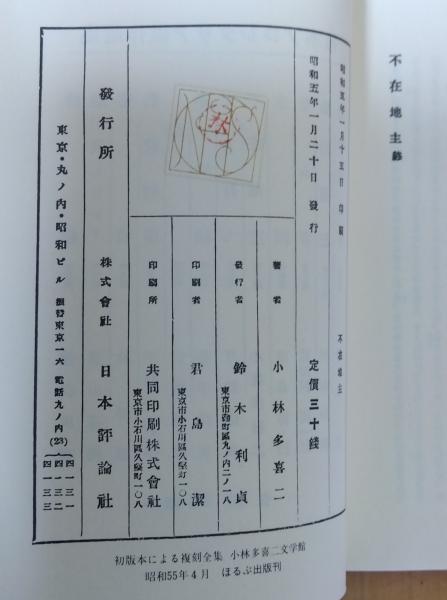 不在地主
昭和五年一月十五日 印刷
昭和五年一月二十日 發行
不在地主
定價三十錢
著者 小林多喜二
發行者 鈴木利貞
東京市麴町區丸ノ内二ノ一八
印刷者 君島潔
東京市小石川區久堅町一〇八
印刷所 共同印刷株式會社
東京市小石川區久堅町一〇八
發行所 株式會社 日本評論社
東京・丸ノ内・昭和ビル 振替東京一六 電話丸ノ内(23) 四一三一 四一三二 四一三三
初版本による複刻全集 小林多喜二文学館
昭和55年4月 ほるぷ出版刊